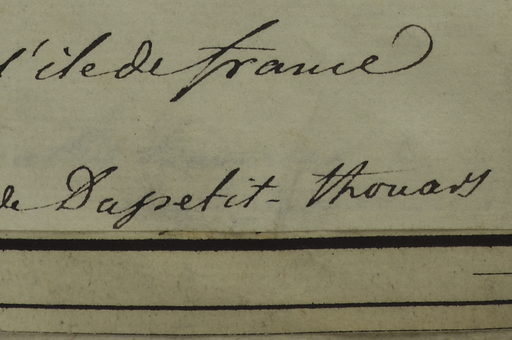 l'ile de france
de Dupetit-thouars